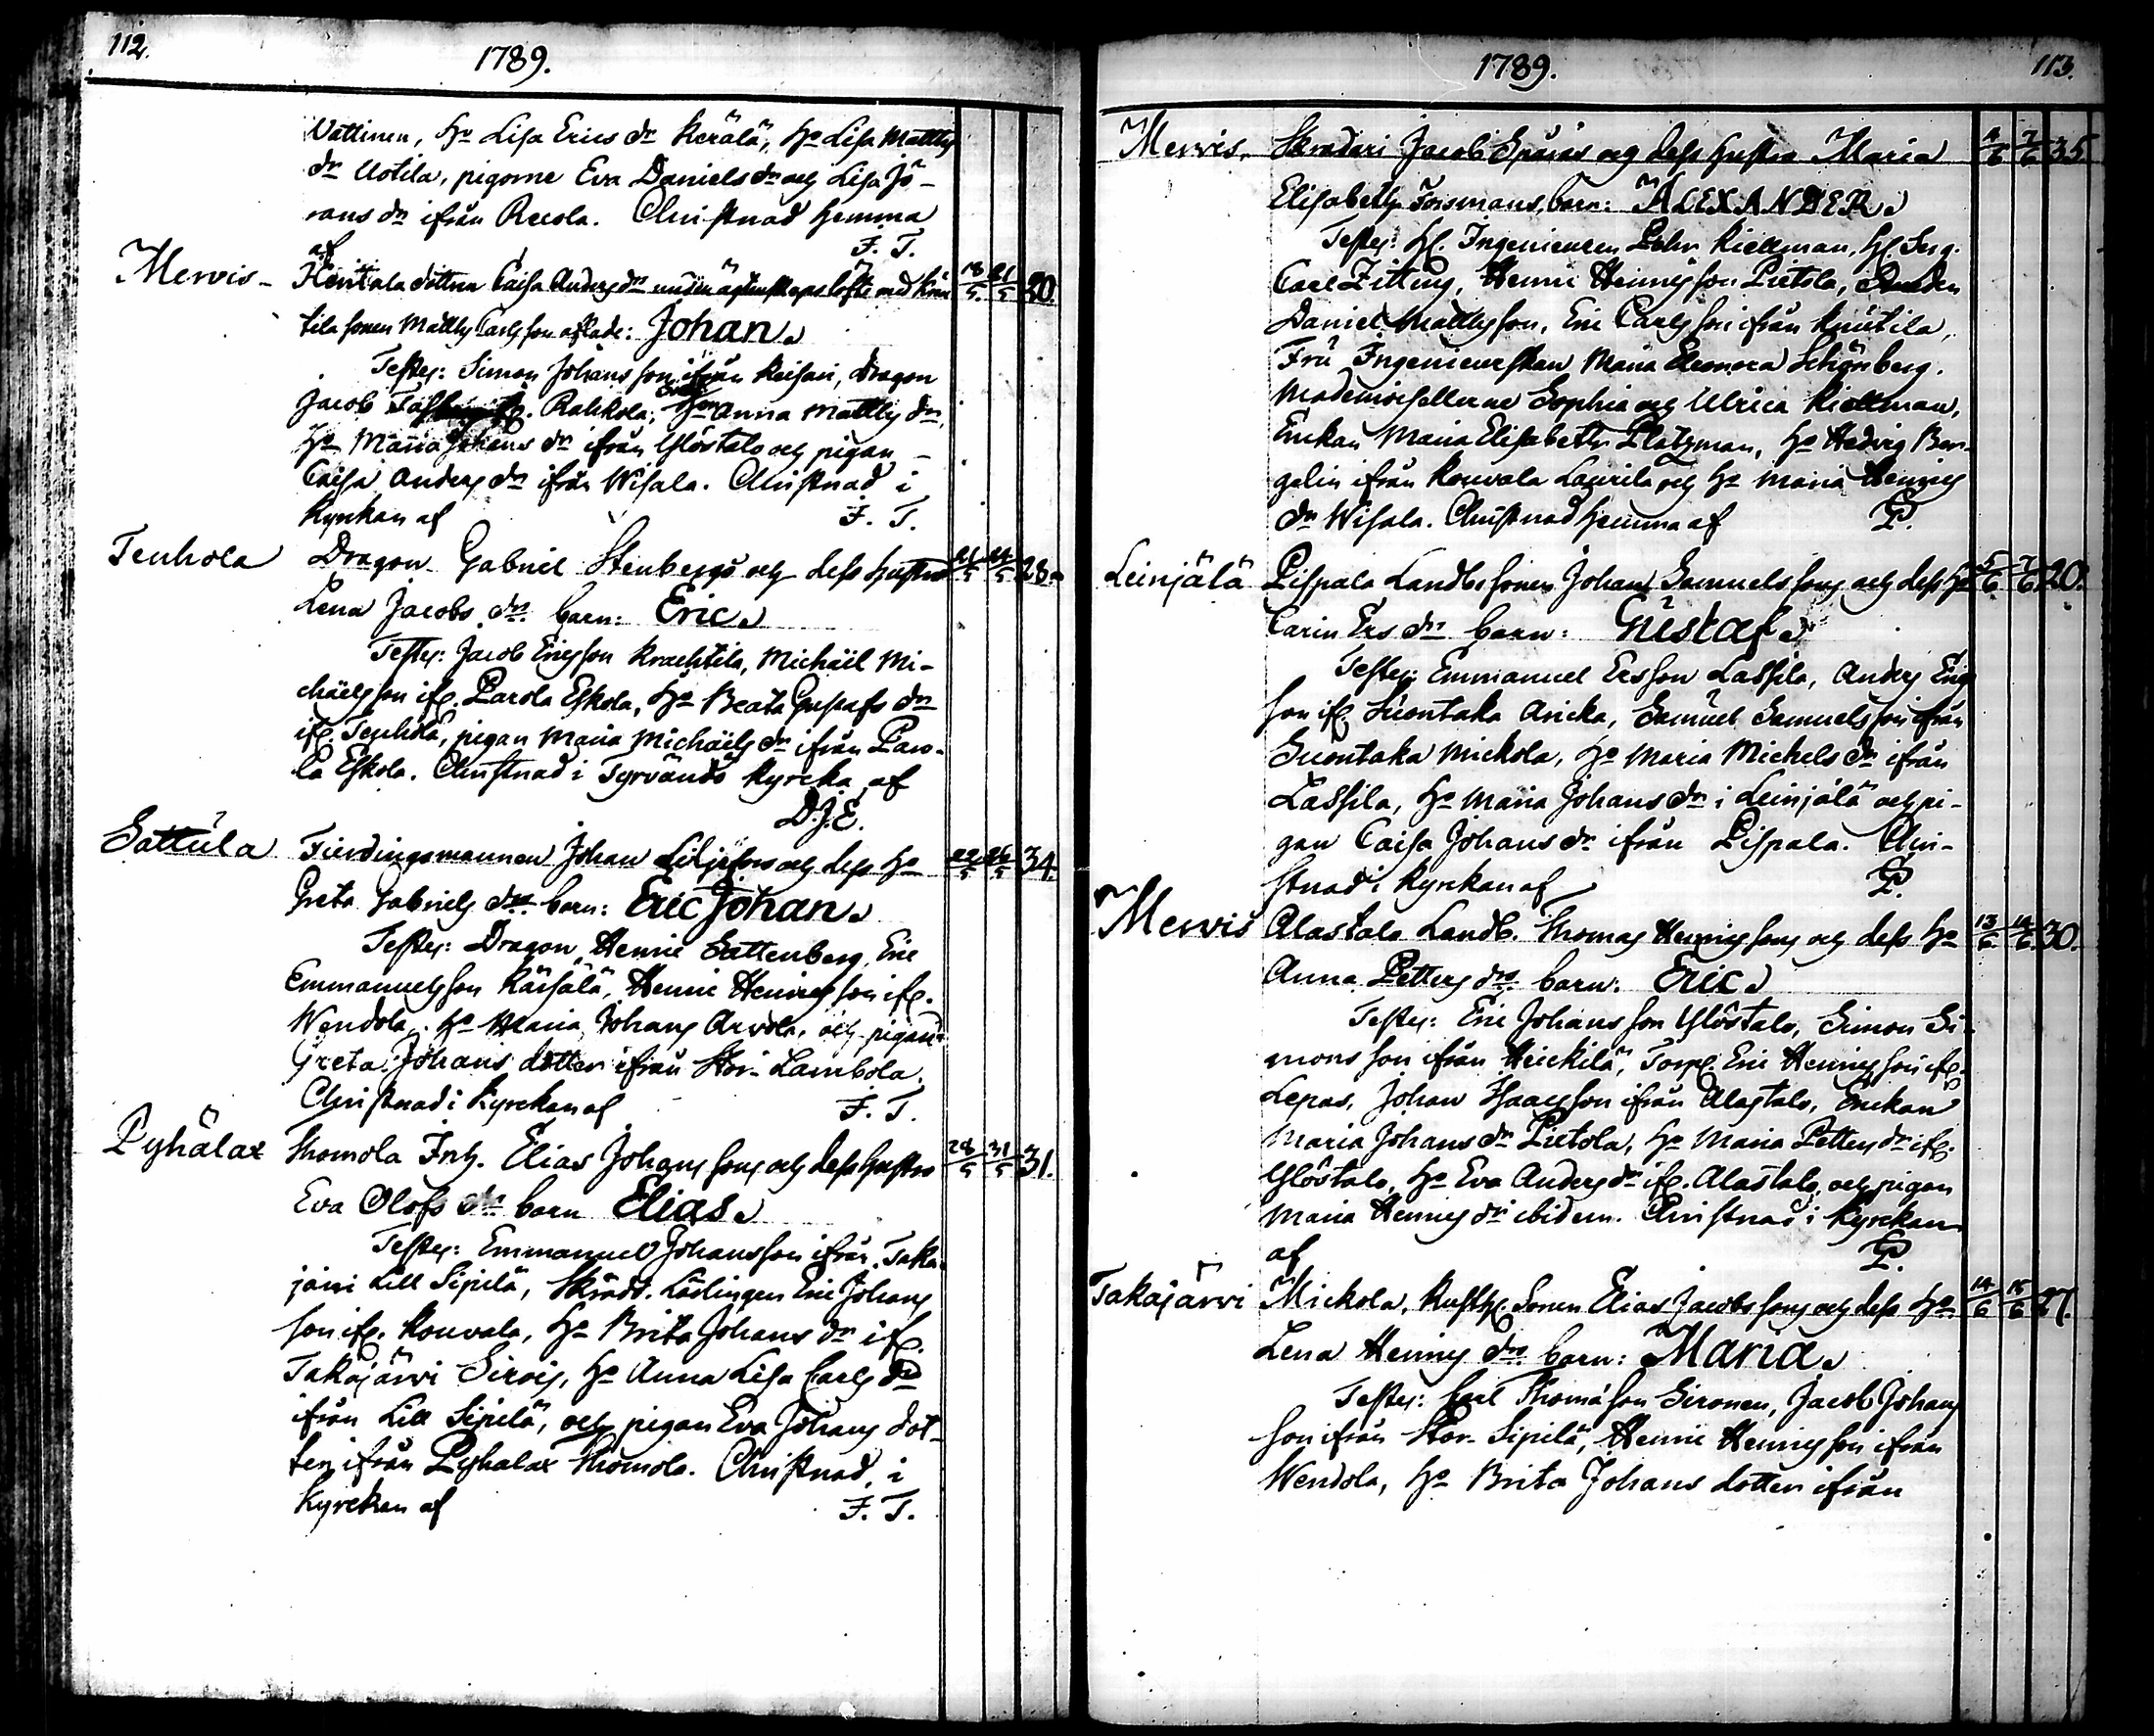 112.
1789.
Nättinen, H:o Lisa Erics d:r Kerälä, H:o Lisa Matths
d:r Uotila, pigorne Eva Daniels d:r och Lisa Jö-
rans d:r ifrån Recola. Christnad hemma
af F. T.
Mervis - Hentala dottren Caisa Anders d:r under ägtenskaps löfte med Knu 18/5. 21/5 20.
tila sonen Matths Carlsson aflade: Johan.
Testes: Simon Johansson ifrån Keisari, Dragon
Jacob Rahkola, Anna Matths d:r,
H:o Maria Johans d:r ifrån Ylöstalo och pigan
Caisa Anders d:r ifrån Wisala. Christnad i
Kyrckan af F. T.
Tenhola Dragon Gabriel Stenbergs och dess hustru 21/5 24/5 28.
Lena Jacobs d:r barn: Eric.
Testes: Jacob Ericsson Krachtila, Michäel Mi-
chäelsson ifr. Parola Eskola, H:o Beata Gustafs d:r
ifr. Tenhola, pigan Maria Michäels d:r ifrån Paro-
la Eskola. Christnad i Tyrvändö Kyrcka af
D.J.E.
Sattula Fierdingsmannen Johan Liljefors och dess H:o 22/5 26/5 34.
Greta Gabriels d:rs barn: Eric Johan.
Testes: Dragon Henric Sattenberg, Eric
Emmanuelsson Kärsälä, Henric Henricsson ifr.
Wendola, H:o Maria Johans Arvola, och pigan
Greta Johans dotter ifrån Stor-Lambola.
Christnad i Kyrckan af F. T.
Pyhälax Thomola Inh. Elias Johanssons och dess hustru 28/5 31/5 31.
Eva Olofs d:rs barn Elias.
Testes: Emmanuel Johansson ifrån Taka-
järvi Lill Sipilä, Skrädd. Lärlingen Eric Johans
son ifr. Kouvala, H:o Brita Johans d:r ifr.
Takajärvi Sirois, H:o Anna Lisa Carls d:r
ifrån Lill Sipilä, och pigan Eva Johans dot-
ter ifrån Pyhalax Thomola. Christnad i
Kyrckan af F. T.
1789.
113.
Mervis. Skradari Jacob Spåras och dess hustru Maria 4/6 7/6 35.
Elisabeth Forsmans barn: ALEXANDER.
Testes: H. Ingenieuren Pehr Kiellman, H. Serg.
Carl Zitting, Henric Henricsson Pietola,
Daniel Matthsson, Eric Carlsson ifrån Knutila,
Fru Ingenieurskan Maria Eleonora Schönberg.
Mademoisellerne Sophia och Ulrica Kiellman,
Enckan Maria Elisabeth Platzman, H:o Hedvig Ber-
gelin ifrån Kouvala Laurila och H:o Maria Henrics
d:r Wisala. Christnad hemma af P.
Leinjälä Pispala Landb. sonen Johan Samuelssons och dess H:o 5/6 7/6 20.
Carin Ers d:rs barn: Gustaf.
Testes: Emmanuel Ersson Lassila, Anders Erics
son ifr. Suontaka Aricka, Samuel Samuelsson ifrån
Suontaka Mickola, H:o Maria Michels d:r ifrån
Lassila, H:o Maria Johans d:r i Leinjälä och pi-
gan Caisa Johans d:r ifrån Pispala. Chri-
stnad i Kyrckan af P.
Mervis Alastalo Landb. Thomas Henricssons och dess H:o 13/6 14/6 30.
Anna Petters d:rs barn: Eric.
Testes: Eric Johansson Ylöstalo, Simon Si-
monsson ifrån Heickilä, Torp. Eric Henricsson ifr.
Lepas, Johan Isaacsson ifrån Alastalo, Enckan
Maria Johans d:r Pietola, H:o Maria Petters d:r ifr.
Ylöstalo, H:o Eva Anders d:r ifr. Alastalo, och pigan
Maria Henrics d:r ibidem. Christnad i Kyrckan
af P.
Takajärvi Mickola, Rusth. Sonen Elias Jacobssons och dess H:o 14/6 15/6 27.
Lena Henrics d:rs barn: Maria.
Testes: Carl Thomasson Sironen, Jacob Johans
son ifrån Stor-Sipilä, Henric Henricsson ifrån
Wendola, H:o Brita Johans dotter ifrån